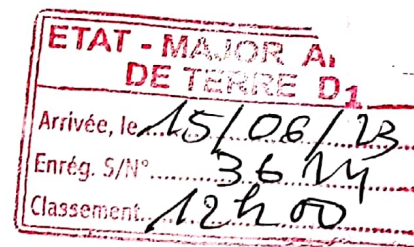 ETAT - MAJOR A.
DE TERRE D1
Arrivée, le 15/06/23
Enrég. S/N° 36
Classement 12h00